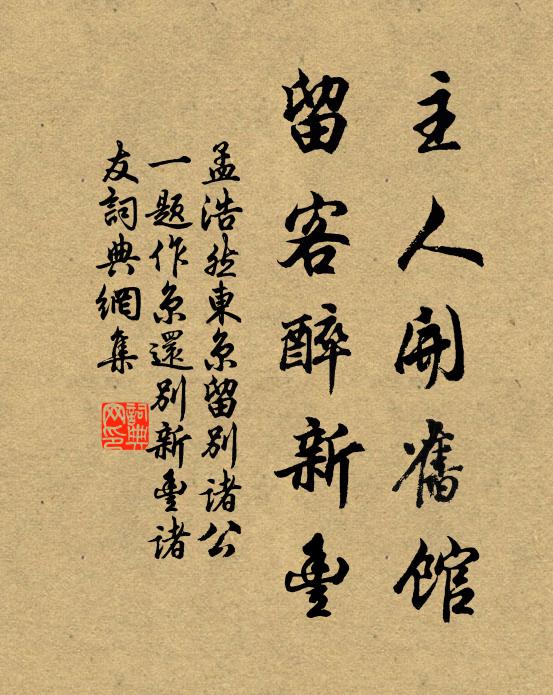 主人開舊館
留客醉新豐
孟浩然東京留別諸公
一題作京還別新豐諸
友詞典網集
詞典网印